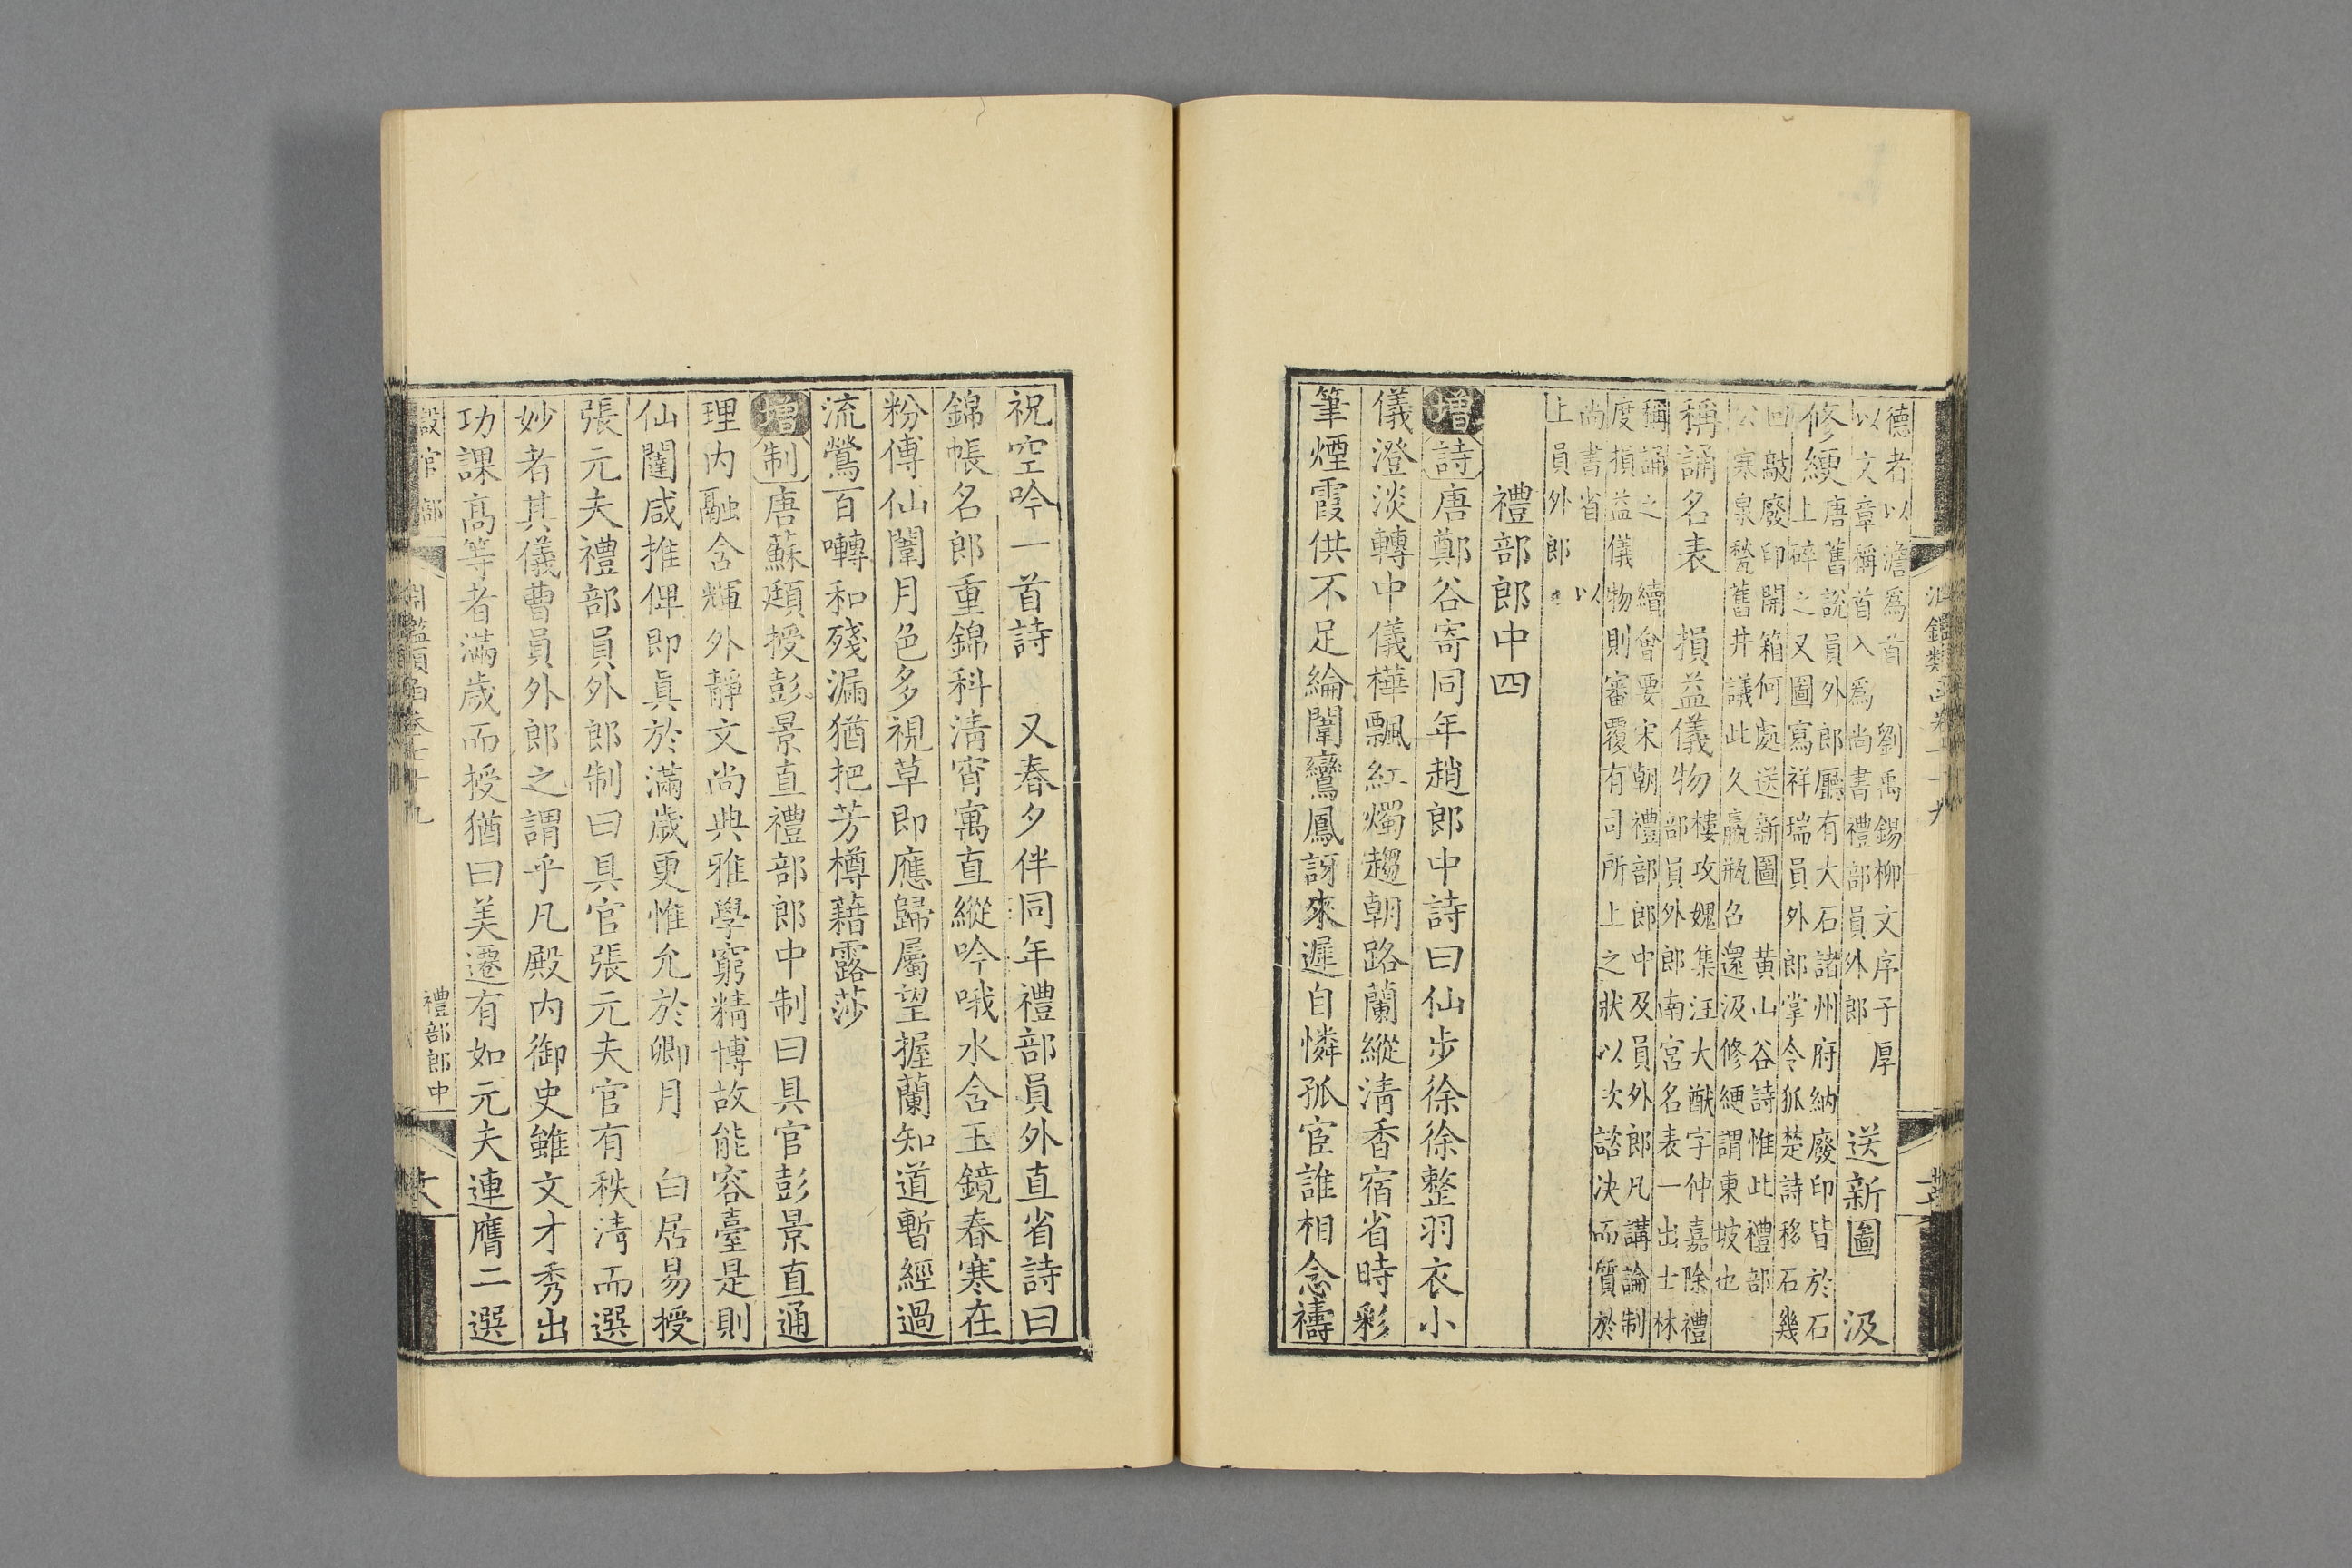 德者以澹爲首 劉禹錫柳文序子厚
以文章稱首入爲尚書禮部員外郎
送新圖 汲
修綆
唐舊說員外郎廳有大石諸州府納廢印皆於石
上碎之又圖寫祥瑞員外郎掌令狐楚詩移石幾
回敲廢印開箱何處送新圖 黃山谷詩惟此禮部
公寒泉甃舊井議此久羸瓶名還汲修綆謂東坡也
稱誦名表 損益儀物
樓攻媿集汪大猷字仲嘉除禮
部員外郎南宮名表一出士林
稱誦之 續會要宋朝禮部郎中及員外郎凡講論制
度損益儀物則審覆有司所上之狀以次諮決而質於
尚書省 以
上員外郎
禮部郎中四
增詩唐鄭谷寄同年趙郎中詩曰仙步徐徐整羽衣小
儀澄淡轉中儀樺飄紅燭趨朝路蘭縱清香宿省時彩
筆煙霞供不足綸闈鸞鳳訝來遲自憐孤宦誰相念禱
祝空吟一首詩 又春夕伴同年禮部員外直省詩曰
錦帳名郎重錦科清宵寓直縱吟哦水含玉鏡春寒在
粉傅仙闈月色多視草即應歸屬望握蘭知道暫經過
流鶯百囀和殘漏猶把芳樽藉露莎
增制唐蘇頲授彭景直禮部郎中制曰具官彭景直通
理內融含輝外靜文尚典雅學窮精博故能容臺是則
仙闈咸推俾即眞於滿歲更惟允於卿月 白居易授
張元夫禮部員外郎制曰具官張元夫官有秩清而選
妙者其儀曹員外郎之謂乎凡殿內御史雖文才秀出
功課高等者滿歲而授猶曰美遷有如元夫連膺二選
設官部
淵鑑類函卷七十九
禮部郎中